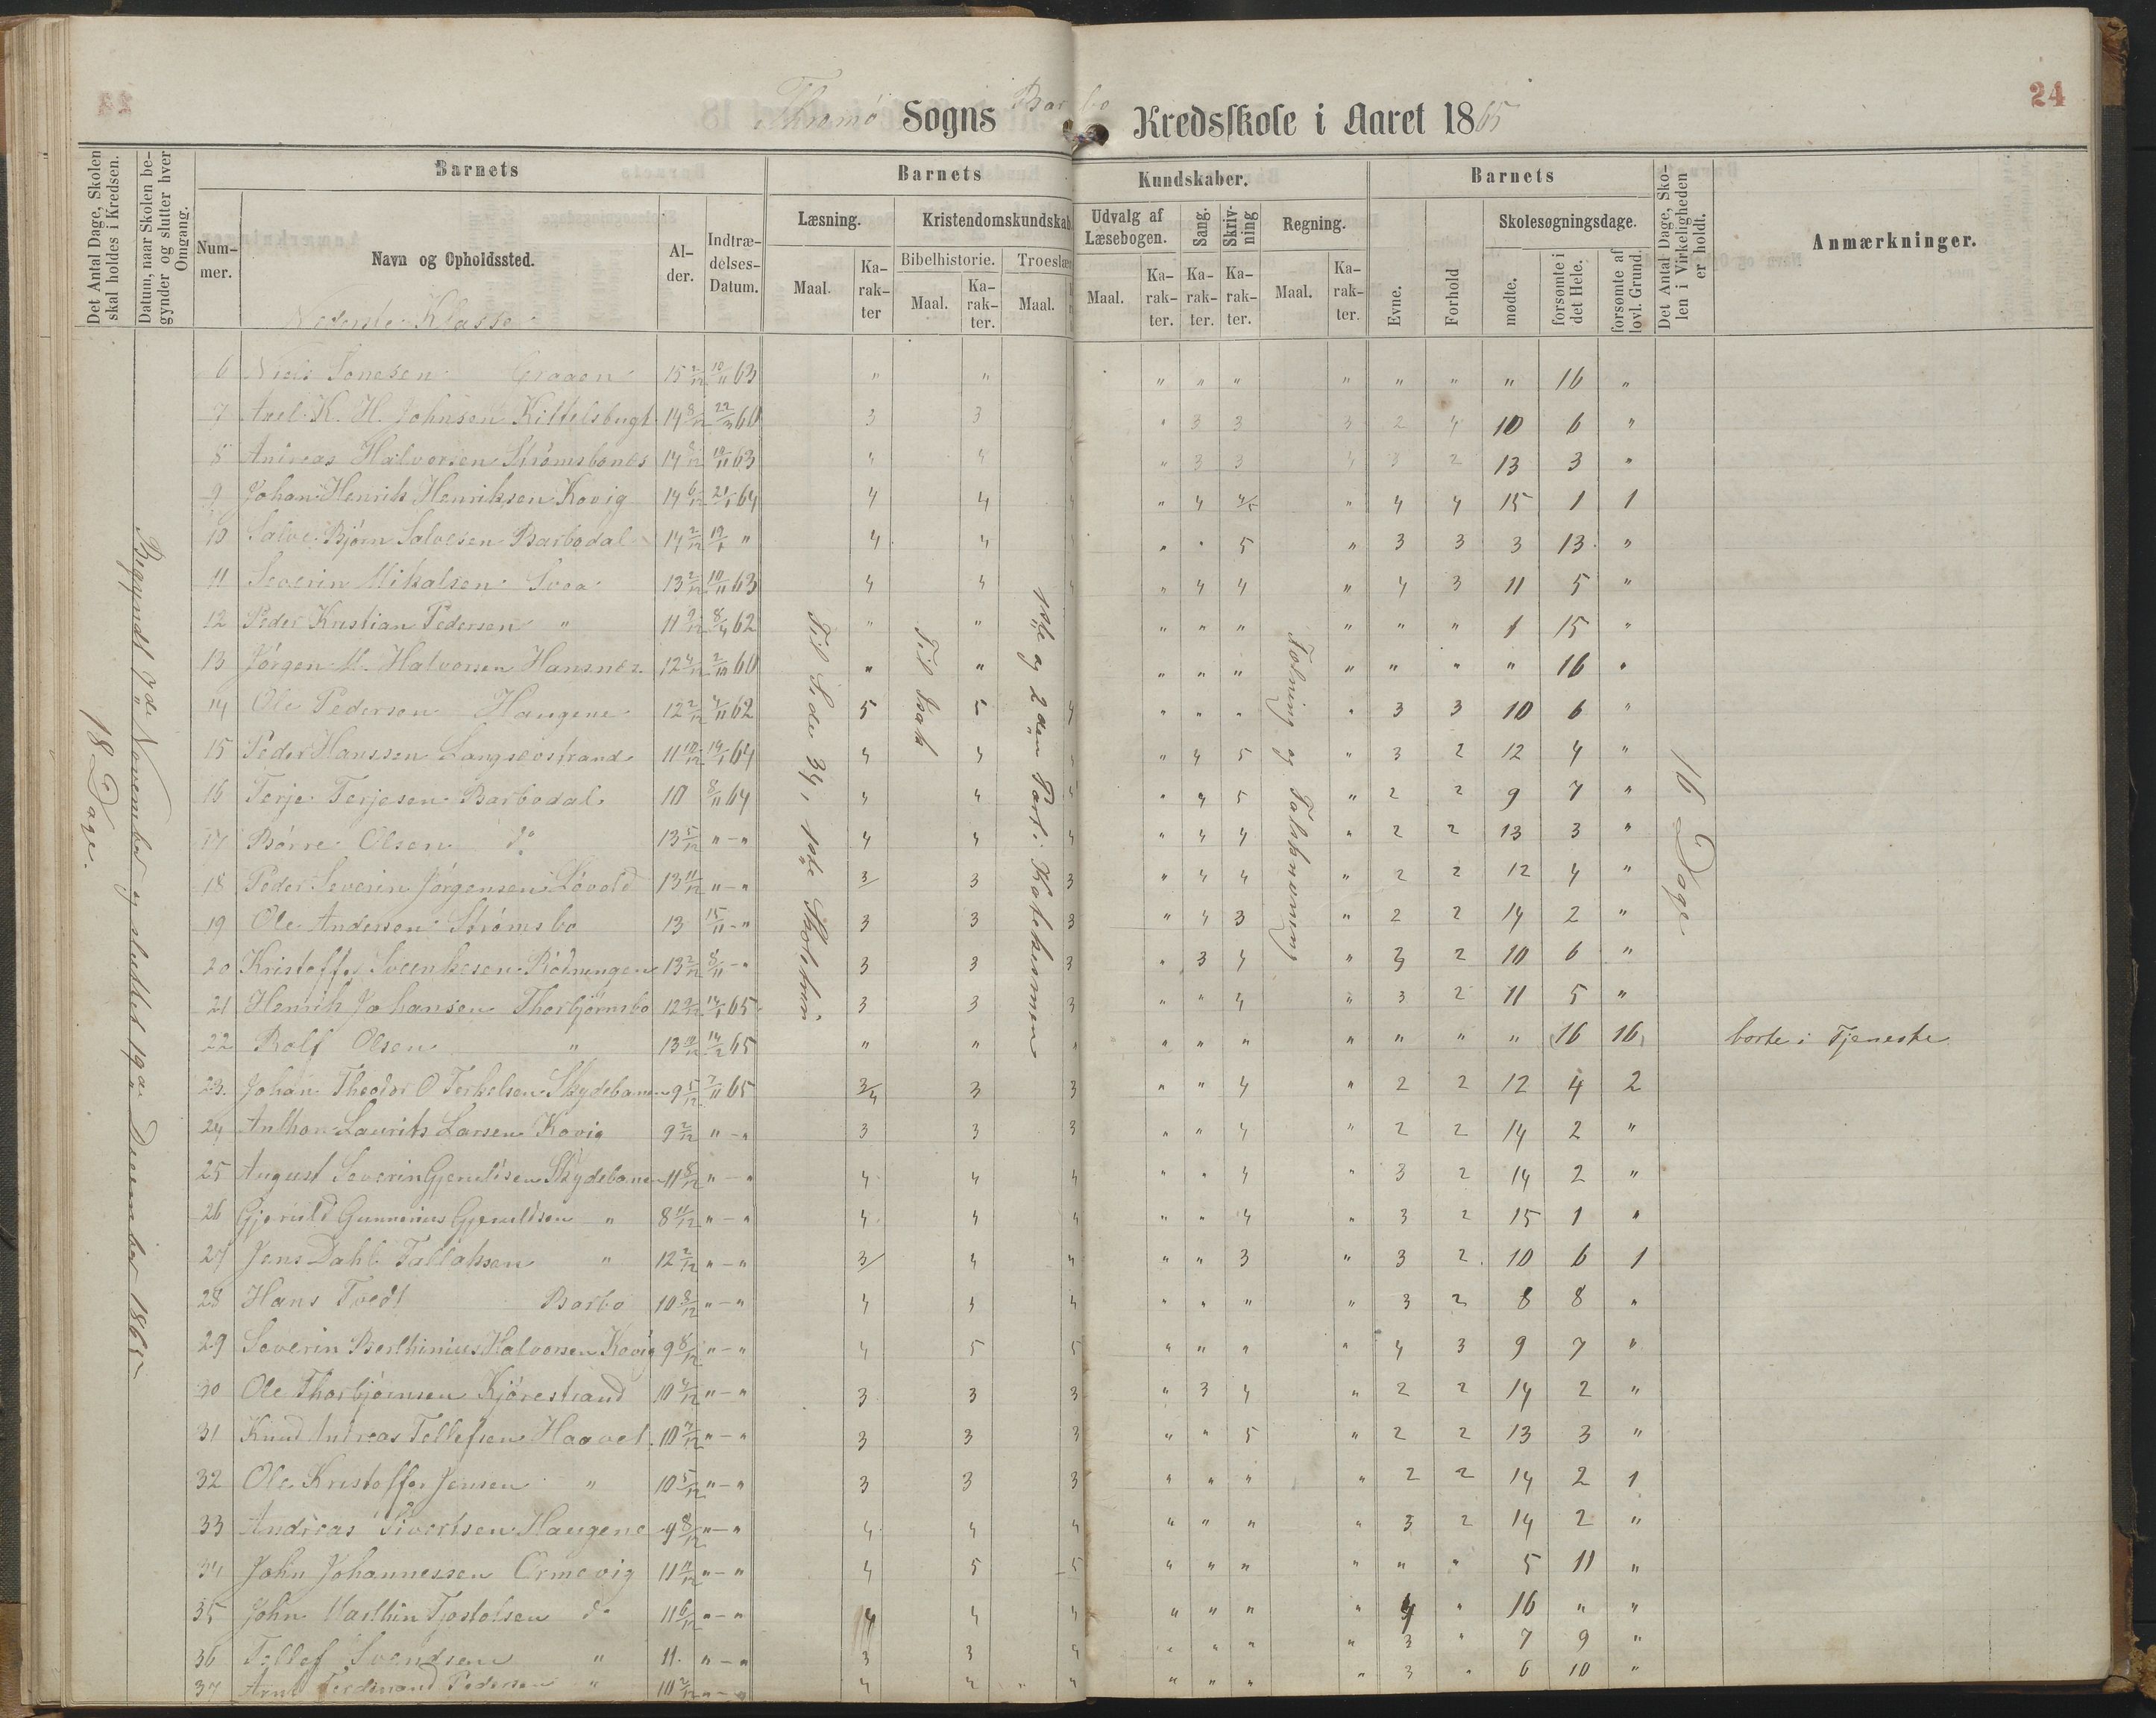 24
Thromø Sogns Barbo Kredsskole i Aaret 1865
Det Antal Dage, Skolen skal holdes i Kredsen.
Datum, naar Skolen begynder og slutter hver Omgang.
Barnets
Num-
mer.
Navn og Opholdssted.
Al-
der.
Indtræ-
delses-
Datum.
Barnets
Kundskaber.
Læsning.
Maal.
Ka-
rak-
ter
Kristendomskundskab
Bibelhistorie.
Maal.
Ka-
rak-
ter.
Troeslær
Maal.
Udvalg af
Læsebogen.
Maal.
Ka-
rak-
ter.
Sang.
Ka-
rak-
ter.
Skriv-
ning
Ka-
rak-
ter.
Regning.
Maal.
Ka-
rak-
ter.
Barnets
Evne.
Forhold
Skolesøgningsdage.
mødte.
forsømte i
det Hele.
forsømte af
lovl. Grund.
Det Antal Dage, Sko-
len i Virkeligheden
er holdt.
Anmærkninger.
Nederste Klasse
18 Dage.
Begyndt 7de November og sluttet 19de December 1865
Til Side 34, 1ste
Til Isak
1ste og 2den Part i Katekismen
Tælning og
16 Dage
6 Niels Tonesen 15 2/12 10/11 63 " " " " " " " " " 16 "
7 Axel K. H. Johnsen Kittelsbugt 14 8/12 22/3 60 3 3 " 3 3 3 2 4 10 6 "
8 Andreas Halvorsen Strømsbones 14 8/12 10/11 63 4 4 " 3 3 4 3 2 13 3 "
9 Johan Henrik Henriksen Kovig 14 6/12 21/1 64 4 4 4 " 4 4/5 " 4 4 15 1 1
10 Salve Bjørn Salvesen Barbodal 14 2/12 19/1 " 4 4 " " 5 " 3 3 3 13 "
11 Severin Mikalsen Svaa 13 2/12 10/11 63 4 4 4 " 4 4 " 4 3 11 5 "
12 Peder Kristian Pedersen " 11 9/12 8/4 62 " " " " " " " " 1 15 "
13 Jørgen M. Halvorsen Hansnes 12 4/12 2/10 60 " " " " " " " " " 16 "
14 Ole Pedersen Haugene 12 2/12 4/11 62 5 5 4 " " " " 3 3 10 6 "
15 Peder Hanssen Langsevstrand 11 10/12 19/1 64 4 4 4 " 4 5 " 3 2 12 4 "
16 Terje Terjesen Barbodal 10 8/11 64 4 4 4 " 4 5 " 2 2 9 7 "
17 Børre Olsen do 13 5/12 " - " 4 4 4 " 4 4 " 2 2 13 3 "
18 Peder Severin Jørgensen Løvold 13 11/12 " - " 3/ 3 3 " 4 4 " 2 2 12 4 "
19 Ole Andersen Strømsbo 13 15/11 - " 3 3 3 " 4 3 " 2 2 14 2 "
20 Kristoffer Svenkesen Rødningen 13 2/12 8/11 - " 3 3 3 " 3 4 " 3 2 10 6 "
21 Henrik Johansen Thorbjørnsbo 12 2/12 14/1 65 3 3 3 " " 4 " 3 2 11 5 "
22 Rolf Olsen " 13 9/12 14/2 65 " " " " " " " " " " 16 16 borte i Tjeneste
23. Johan Theodor O Terkelsen Skydebanen 9 5/12 7/11 65 3/4 3 3 " " 4 " 2 2 12 4 2
24 Anthon Laurits Larsen Kovig 9 2/12 " - " 3 3 3 " " 4 " 2 2 14 2 "
25 August Severin Gjeruldsen Skydebanen 11 8/12 " - " 4 4 4 " " 4 " 3 2 14 2 "
26 Gjeruld Gunnerius Gjeruldsen " 8 11/12 " - " 4 4 4 " " 4 " 3 2 15 1 "
27 Jens Dahl Tallaksen " 12 2/12 " - " 3/ 4 4 " " 3 " 3 2 10 6 1
28 Hans Tvedt Barbo 10 8/12 " - " 4 4 4 " " " " 3 2 8 8 "
29 Severin Berthinius Halvorsen Kovig 9 8/12 " - " 4 5 5 " " " " 4 3 9 7 "
30 Ole Thorbjørnsen Kjørestrand 10 4/12 " - " 3 3 3 " 3 4 " 2 2 14 2 "
31 Knud Andreas Tellefsen Haavet 10 3/12 " - " 3 3 3 " " 5 " 2 2 13 3 "
32 Ole Kristoffer Jensen " 10 5/12 " - " 3 3 3 " " " " 2 2 14 2 1
33 Andreas Sivertsen Haugene 9 8/12 " - " 4 4 4 " " " " 3 2 14 2 "
34 John Johannessen Ormevig 11 11/12 " - " 4 5 5 " " " " " " 5 11 "
35 John Marthin Tjostolsen do 11 6/12 " - " 4 4 4 " " " " 4 " 16 " "
36 Tellef Svendsen " 11. " - " 3 3 4 " " " " 3 " 7 9 "
37 Arnt Ferdinand Pedersen " 10 2/12 " - " 4 4 " 4 " " " " 3 " 6 10 "